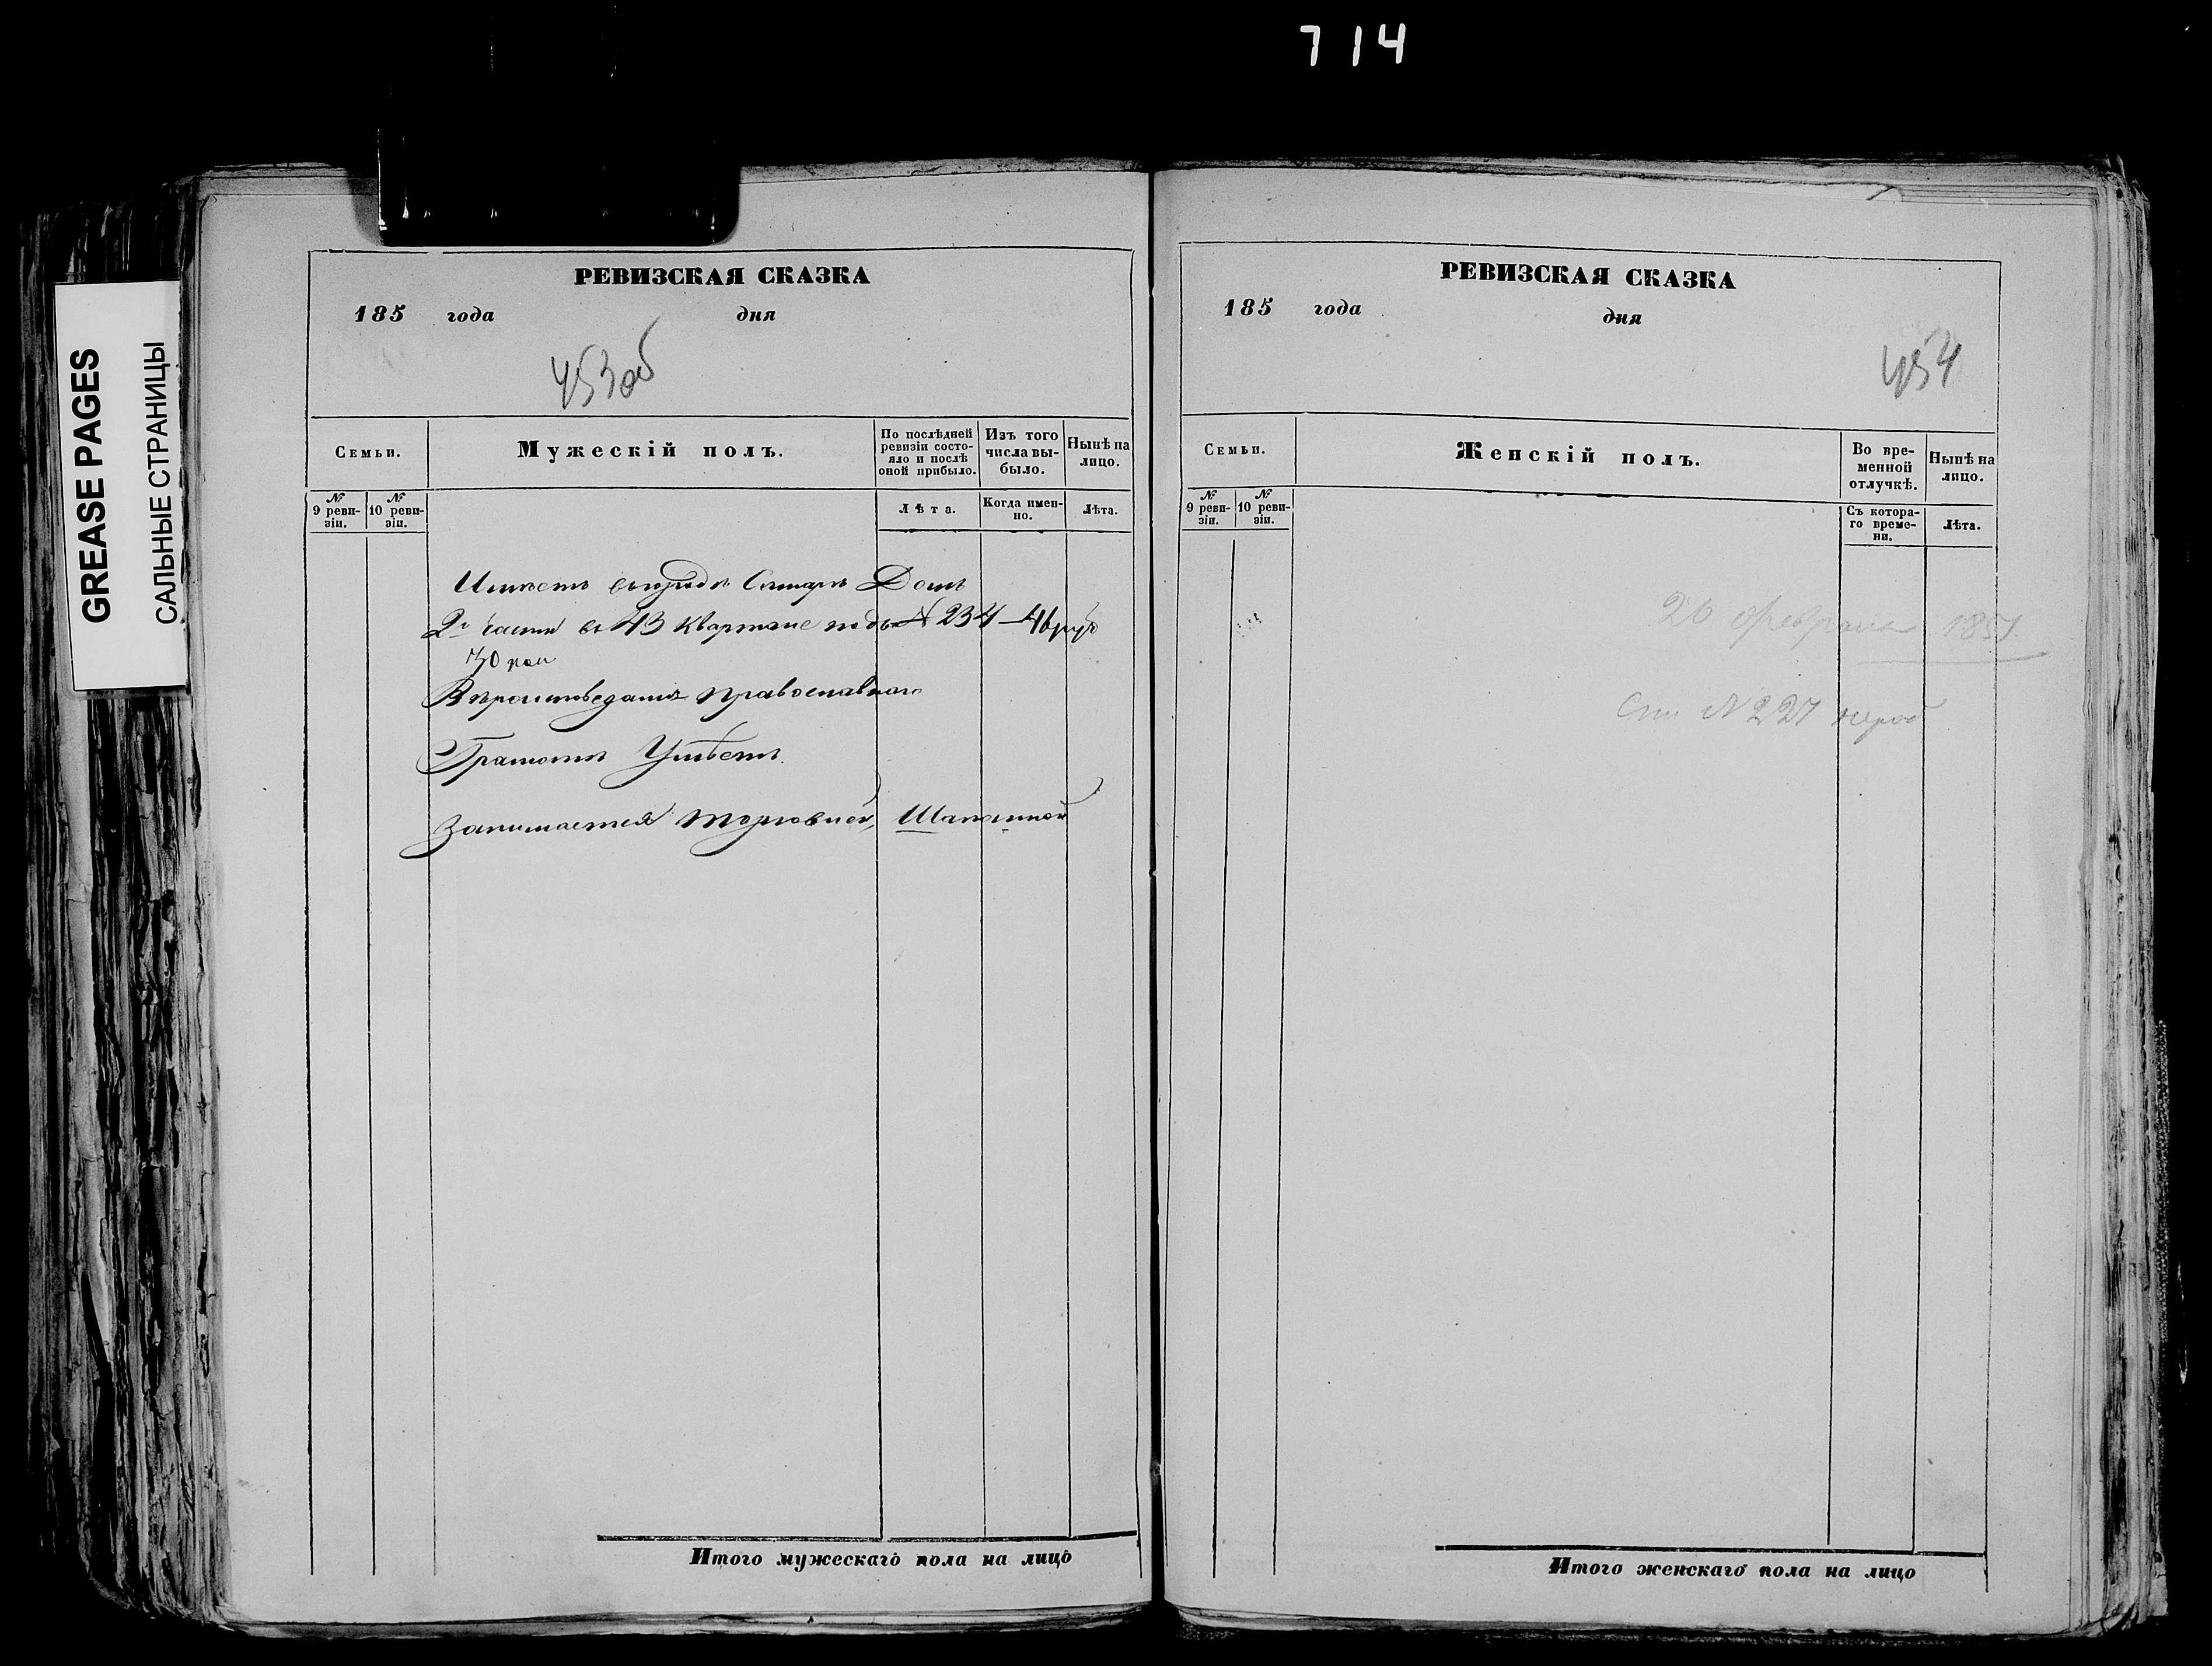 714
GREASE PAGES
САЛЬНЫЕ СТРАНИЦЫ
РЕВИЗСКАЯ СКАЗКА
185 года дня
453об
Семьи.
Мужескій полъ.
По послѣдней ревизіи состояло и послѣ оной прибыло.
Изъ того числа выбыло.
Нынѣ на лицо.
№ 9 ревизіи.
№ 10 ревизіи.
Лѣта.
Когда именно.
Лѣта.
Имѣетъ Домъ
2й части въ 43 Кварталѣ подъ № 234 — 46 руб
30 коп
Вѣроисповѣданія Православнаго
Грамотѣ Умѣетъ
Занимается торговлей, Шапошной
Итого мужескаго пола на лицо
РЕВИЗСКАЯ СКАЗКА
185 года дня
454
Семьи.
Женскій полъ.
Во временной отлучкѣ.
Нынѣ на лицо.
№ 9 ревизіи.
№ 10 ревизіи.
Съ котораго времени.
Лѣта.
26 февраля 185
№ 227
Итого женскаго пола на лицо